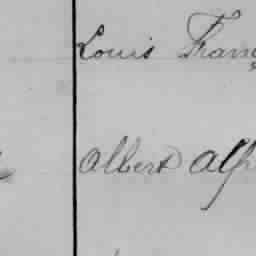 Louis Fran
Albert Alf